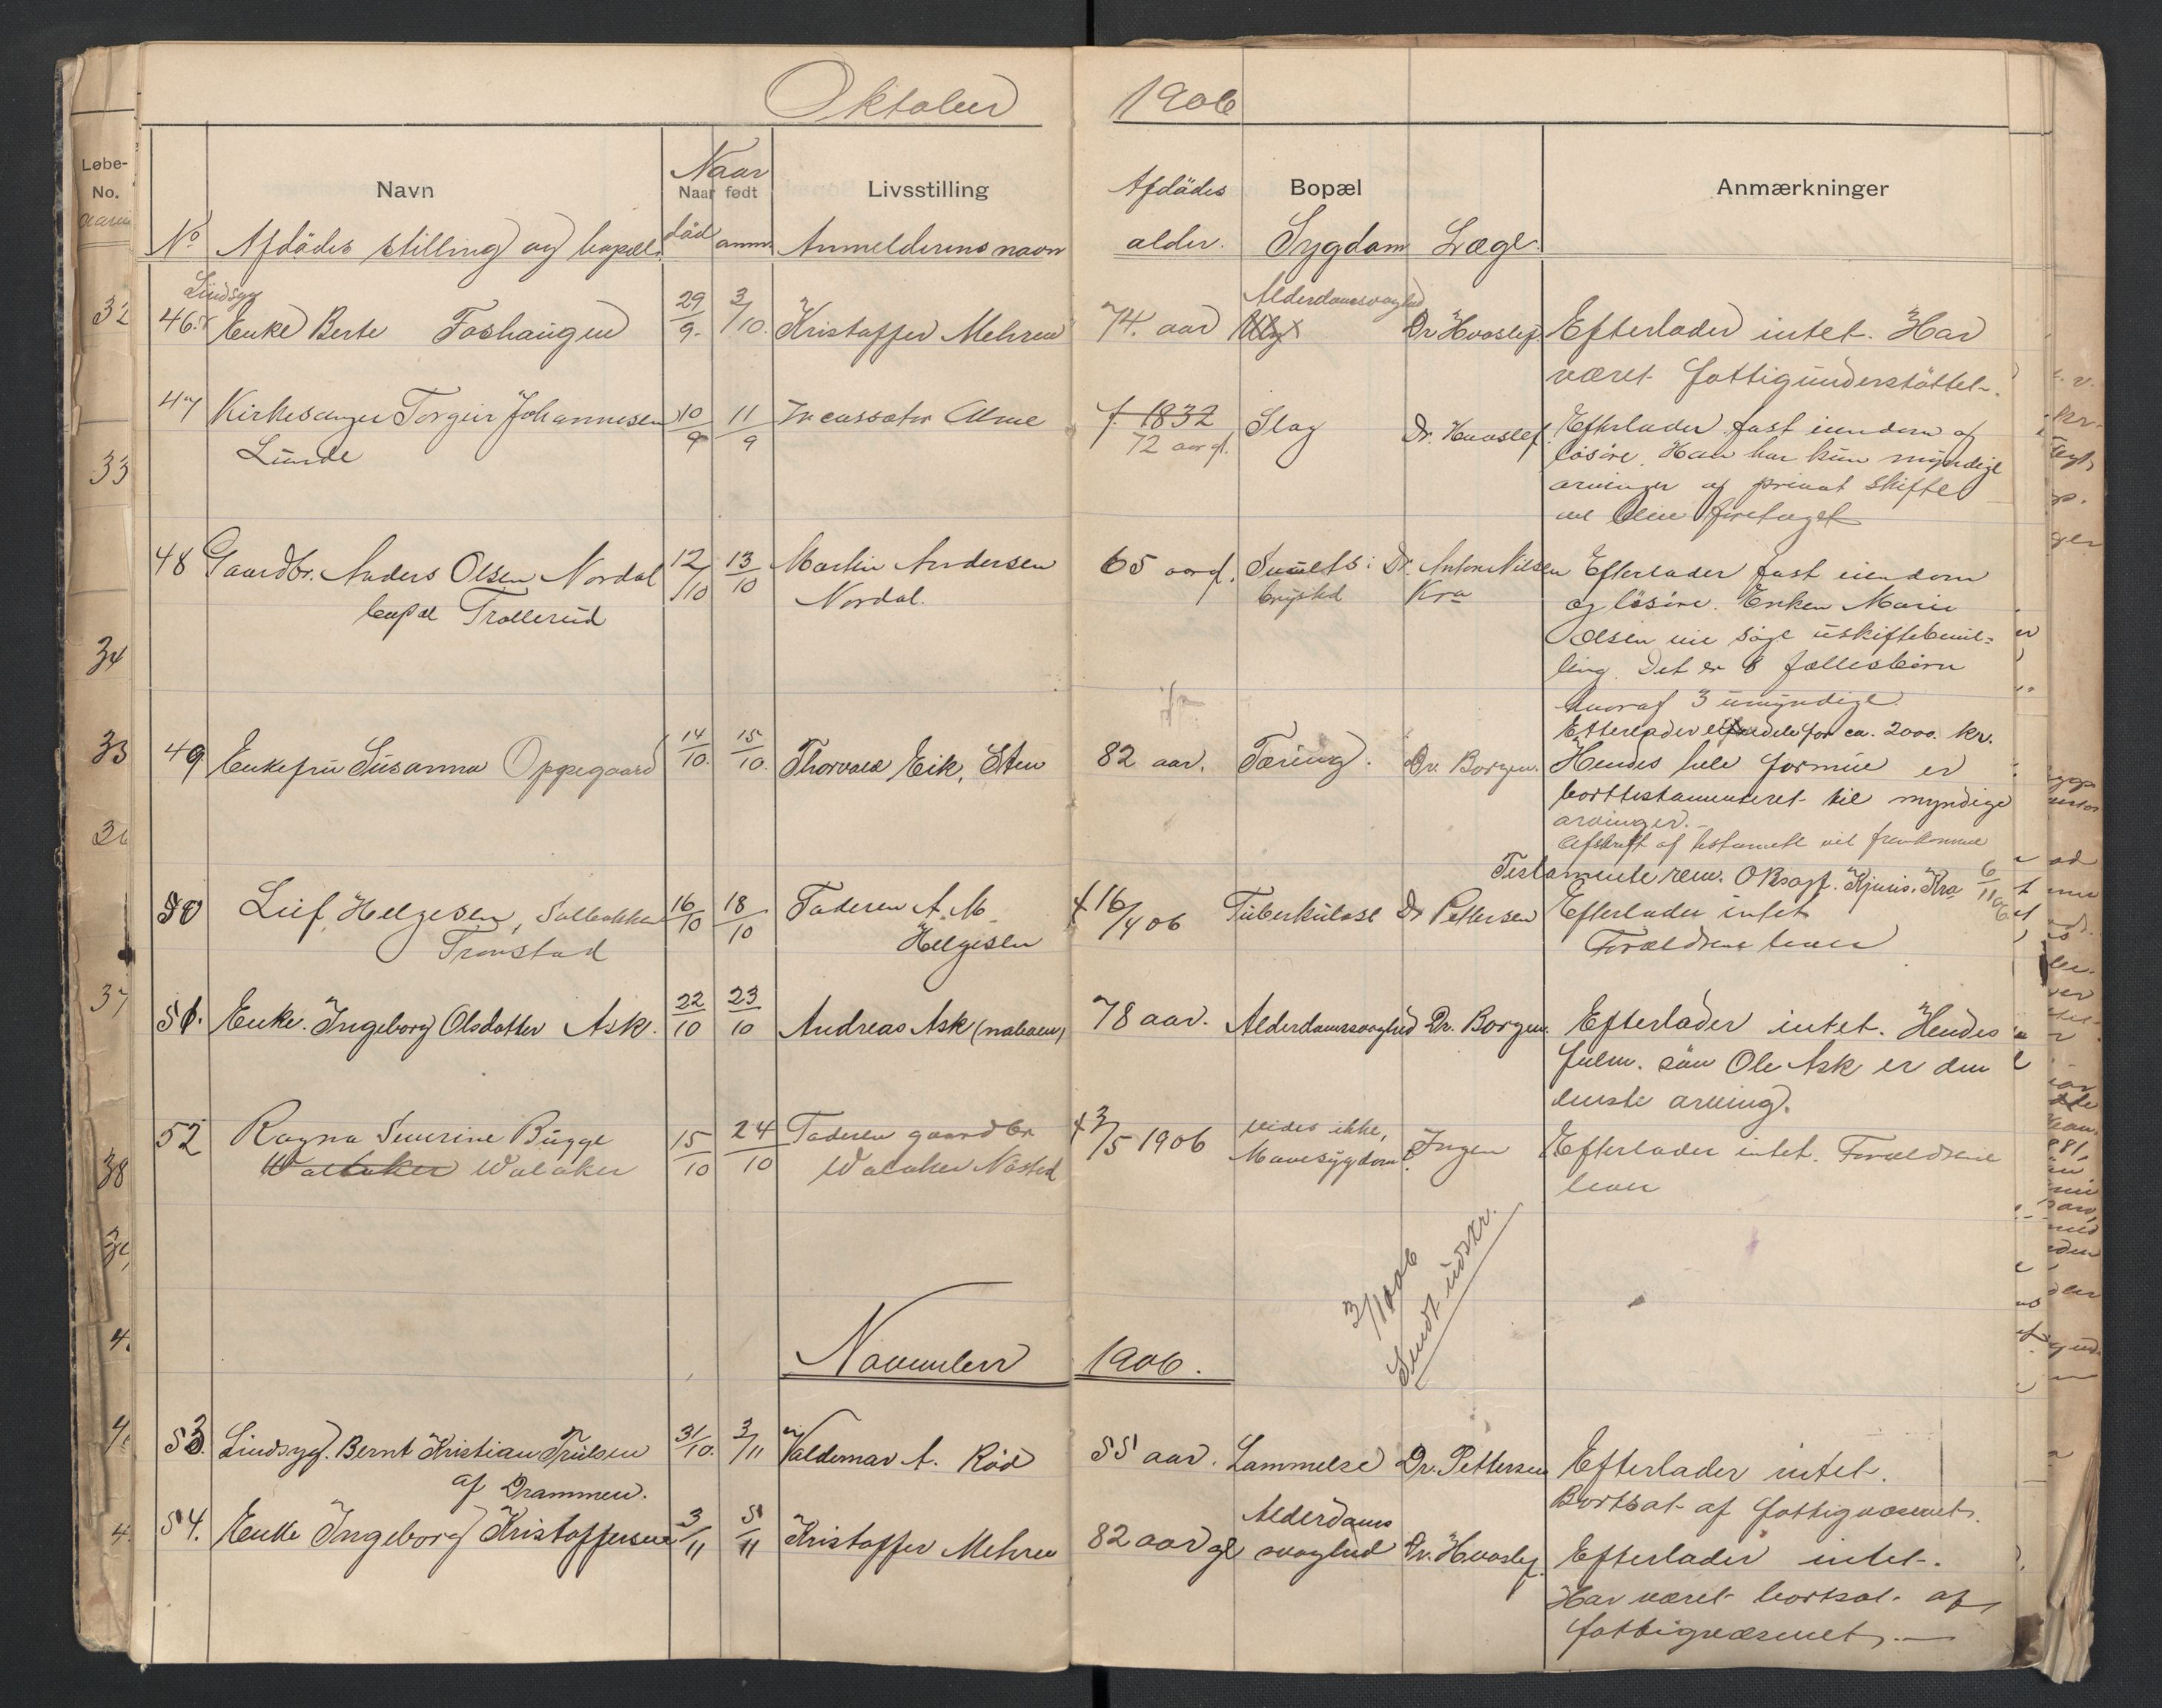 Oktober 1906
Løbe-
No.
Navn
Naar
Naar født
Livsstilling
Afdødes
Bopæl
Anmærkninger
No Afdødes stilling og bopæl.
død anm. Anmelderens navn
alder. Sygdom Læge.
46. Lindsyg
Enke Berte Foshaugen 29/9. 3/10. Kristoffer Mehren 74. aar Alderdomssvaghed Dr Hvoslef. Efterlader intet. Har
været fattigunderstöttet.
47 Kirkesanger Torgeir Johannesen 10/9 11/9 Incassator Alme f. 1832 Slag Dr. Hvoslef. Efterlader fast eiendom og
Lunde 72 aar gl. lösöre. Han har kun myndige
arvinger og privat skifte
vil blive foretaget
48 Gaardbr. Anders Olsen Nordal 12/10 13/10 Martin Andersen 65 aar gl. Dr. Anton Nilsen Efterlader fast eiendom
bopæl Trollerud Nordal. Kra og lösöre. Enken Marie
Olsen vil söge uskiftebevil=
ling. Det er 8 fællesbörn
hvoraf 3 umyndige.
Efterlader eiendele for ca. 2000. kr.
49 Enkefru Susanna Oppegaard 14/10. 15/10. Thorvald Eik, Sten 82 aar. Tæring. Dr. Borgen. Hendes hele formue er
borttestamenteret til myndige
arvinger.-
Afskrift af testamente vil fremkomme
Testamente rem. ORsagf. Kjuris. Kra 6/11 06
50 Leif Helgesen, Solbakken 16/10 18/10 Faderen A. M. f 16/4 06 Tuberkulose Dr Pettersen Efterlader intet
Tronstad Helgesen Forældrene lever
51. Enke. Ingeborg Olsdatter Ask. 22/10 23/10 Andreas Ask (naboen) 78 aar. Alderdomssvaghed Dr. Borgen. Efterlader intet. Hendes
fulm. sön Ole Ask er den
eneste arving.
52 Ragna Severine Bugge 15/10 24/10 Faderen gaardbr f 3/5 1906 vides ikke, Ingen Efterlader intet. Forældrene
Walaker Walaker Walaker Næsted Mavesygdom? lever
3/11 006
Sendt udskr.
November 1906.
53. Lindsyg. Bernt Kristian Trulsen 31/10. 3/11 Valdemar A. Röd 55 aar. Lammelse Dr. Pettersen Efterlader intet.
af Drammen. Bortsat af fattigvæsenet.
54. Enke Ingeborg Kristoffersen 3/11 5/11 Kristoffer Mehren 82 aar gl Alderdoms
svaghed Dr. Hvoslef. Efterlader intet.
Har været bortsat af
fattigvæsenet.—